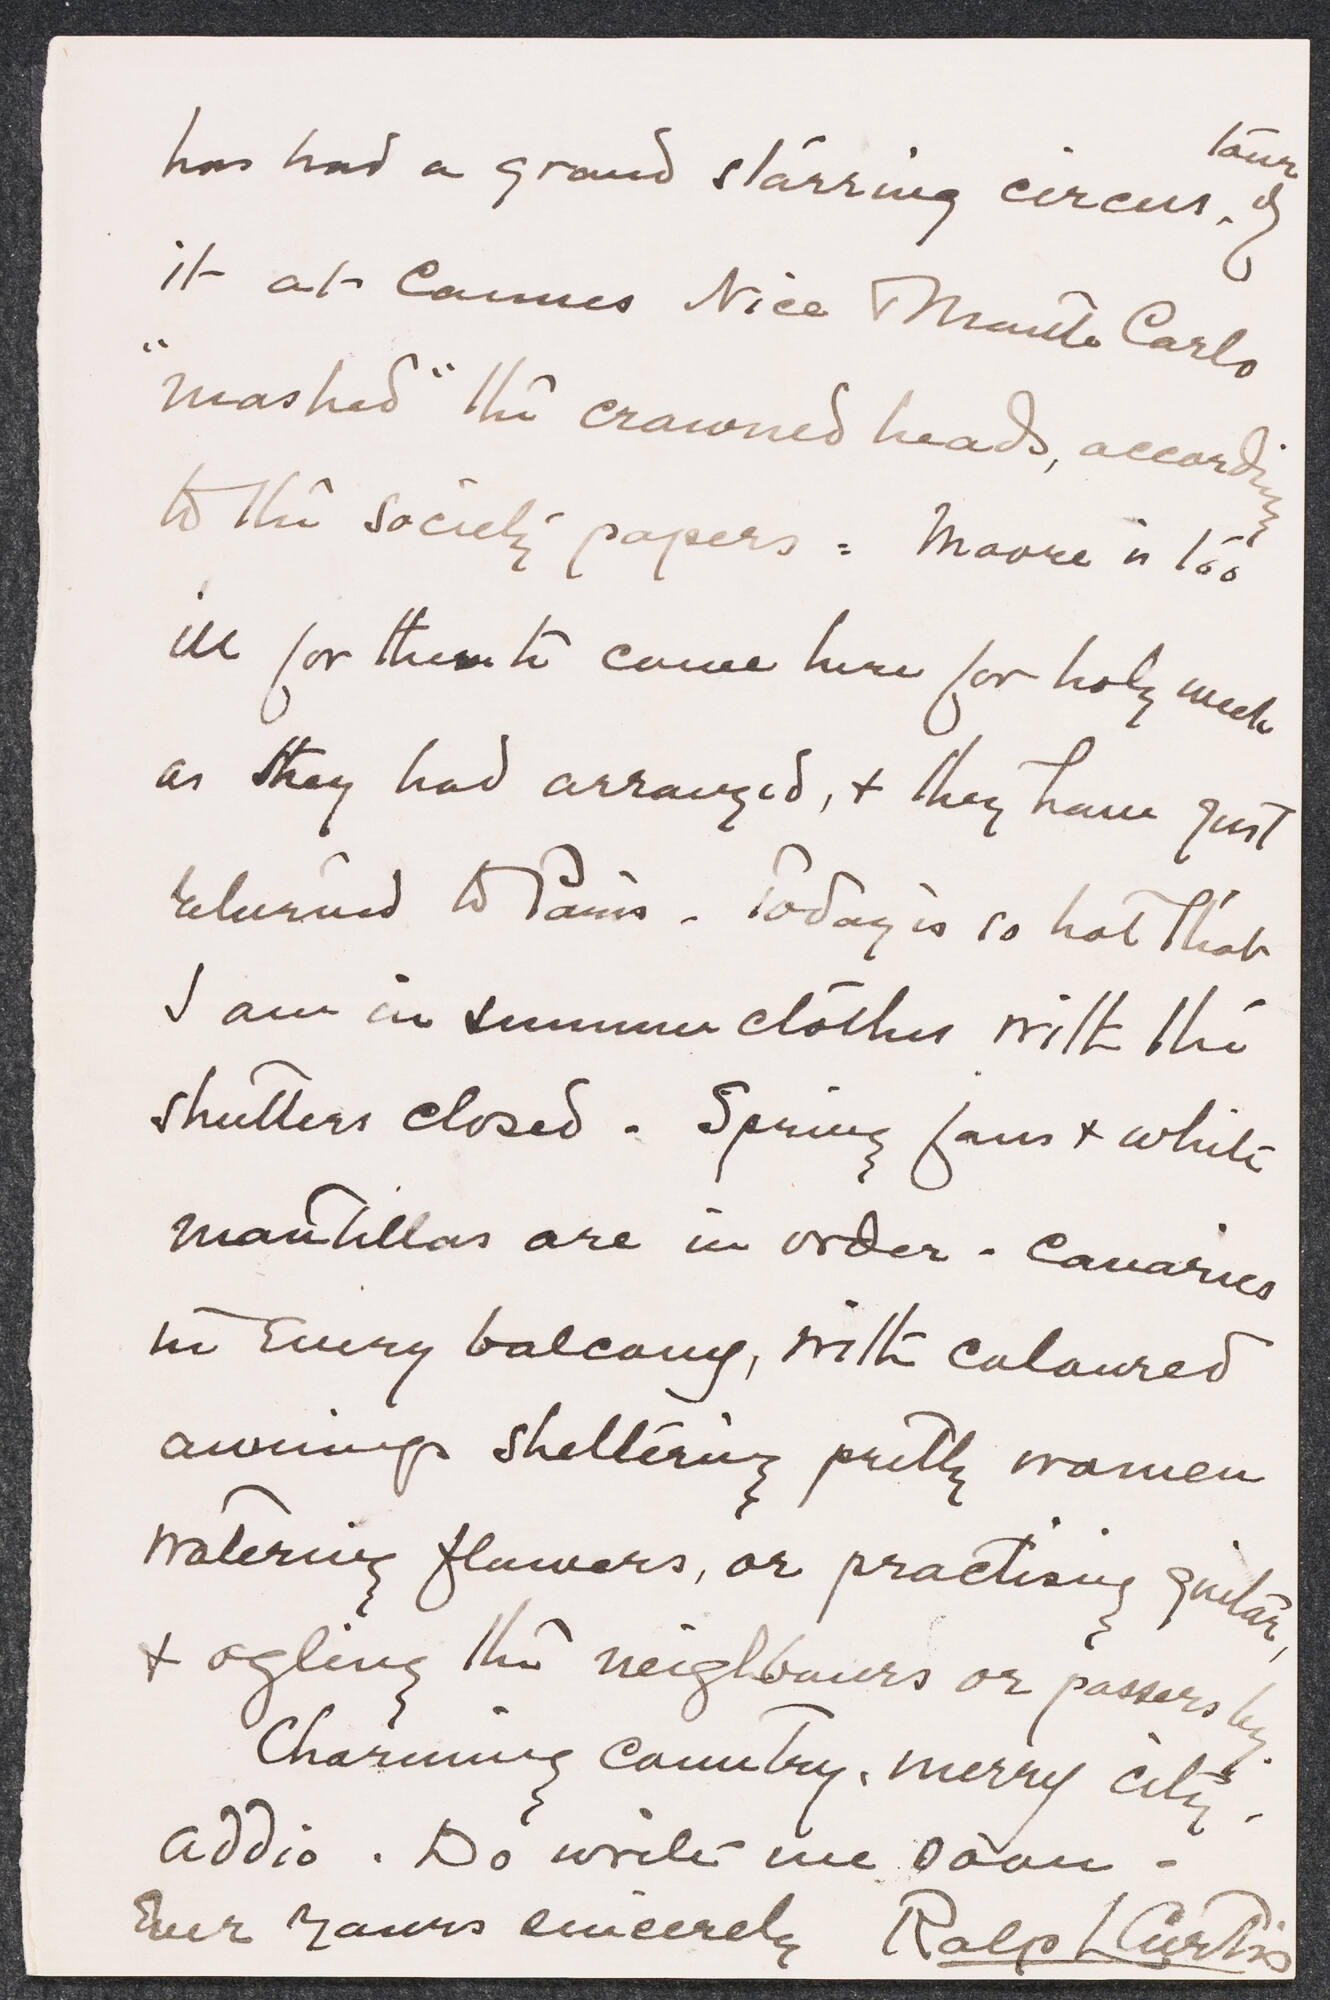 has had a grand starring circus-tour of
it at Cannes Nice & Monte Carlo
"mashed" the crowned heads, according
to the society papers = Moore is too
ill for them to come here for holy week
as they had arranged, & they have just
returned to Paris - Today is so hot that
I am in summer clothes with the
shutters closed - Spring fans & white
mantillas are in order - Canaries
in every balcony, with coloured
awnings sheltering pretty women
watering flowers, or practising guitar,
& ogling the neighbours or passers by.
Charming country, merry city -
addio. Do write me soon -
Ever yours sincerely Ralph Curtis